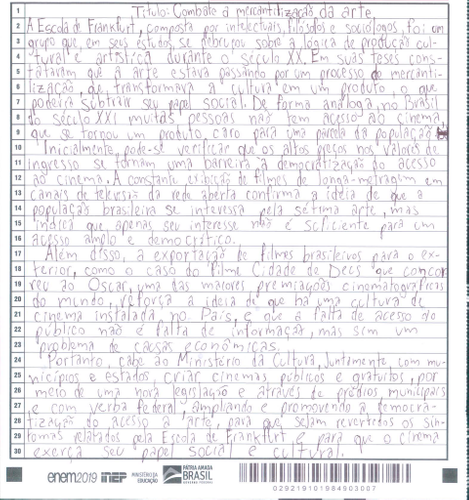 1 Título: Combate à mercantilização da arte
2 A Escola de Frankfurt, composta por intelectuais, filósofos e sociólogos, foi um
3 grupo que, em seus estudos se debruçou sobre a lógica de produção cul-
4 tural e artística durante o século XX. Em suas teses cons-
5 tataram que a arte estava passando por um processo de mercanti-
6 lização, de transformava a cultura em um produto, o que
7 poderia subtrair seu papel social. De forma análoga, no Brasil
8 do século XXI muitas pessoas não tem acesso ao cinema,
9 que se tornou um produto, caro para uma parcela da população.
10 Inicialmente, pode-se verificar que os altos preços nos valores do
11 ingresso se tornam uma barreira à democratização do acesso
12 ao cinema. A constante exibição de filmes de longa-metragem em
13 canais de televisão da rede aberta confirma a ideia de que a
14 população brasileira se interessa pela sétima arte, mas
15 indica que apenas seu interesse não é suficiente para um
16 acesso amplo e democrático.
17 Além disso, a exportação de filmes brasileiros para o ex-
18 terior, como o caso do filme Cidade de Deus que concor
19 reu ao Oscar, uma das maiores premiações cinematográficas
20 do mundo, reforça a ideia de que há uma cultura de
21 cinema instalada no País, e que a falta de acesso do
22 público não é falta de informação, mas sim um
23 problema de causas econômicas.
24 Portanto, cabe ao Ministério da Cultura, juntamente com mu-
25 nicípios e estados, criar cinemas públicos e gratuitos, por
26 meio de uma nova legislação e através de prédios municipais
27 e com verba federal, ampliando e promovendo a democra-
28 tização do acesso a arte, para que sejam revertidos os sin-
29 tomas relatados pela Escola de Frankfurt e para que o cinema
30 exerça seu papel social e cultural.
enem2019 INEP MINISTÉRIO DA EDUCAÇÃO PÁTRIA AMADA BRASIL GOVERNO FEDERAL
029219101984903007